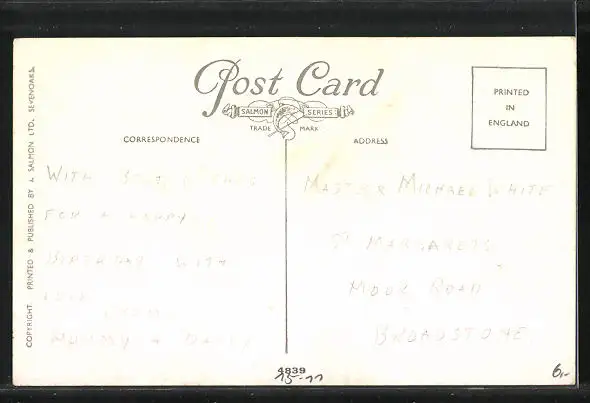 Post Card
SALMON SERIES
TRADE MARK
CORRESPONDENCE
ADDRESS
PRINTED
IN
ENGLAND
COPYRIGHT PRINTED & PUBLISHED BY J. SALMON LTD., SEVENOAKS.
WITH
FOR A HAPPY
BIRTHDAY WITH
LOVE
FROM
MUMMY & DADDY
MASTER MICHAEL WHITE
ST MARGARETS
MOOR ROAD
BROADSTONE
4839
6,-